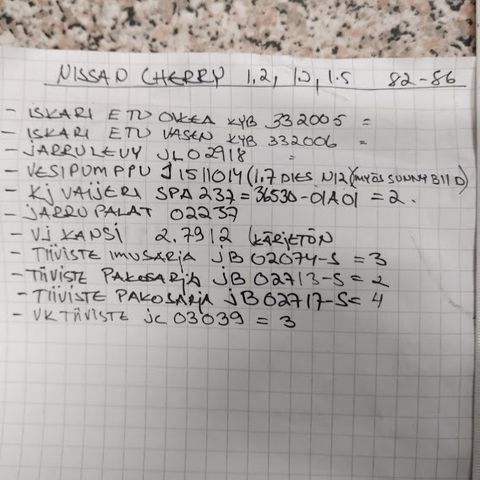 NISSAN CHERRY 1,2, 1,3, 1.5 82-86
- ISKARI ETU OIKEA KYB 332005 =
- ISKARI ETU VASEN KYB 332006 =
- JARRULEVY JLO2918 =
- VESIPUMPPU J1511014 (1.7 DIES N12 (MYÖS SUNNY B11 D)
- Kj VAIJERI SPA 237 = 36530-01A01 = 2.
- JARRUPALAT 02237
- Vj KANSI 2.7912 (KÄRJETÖN
- TIIVISTE IMUSARJA JB 02074-S = 3
- TIIVISTE PAKOSARJA JB 02713-S = 2
- TIIVISTE PAKOSARJA JB02717-S= 4
- VK TIIVISTE JC 03039 = 3